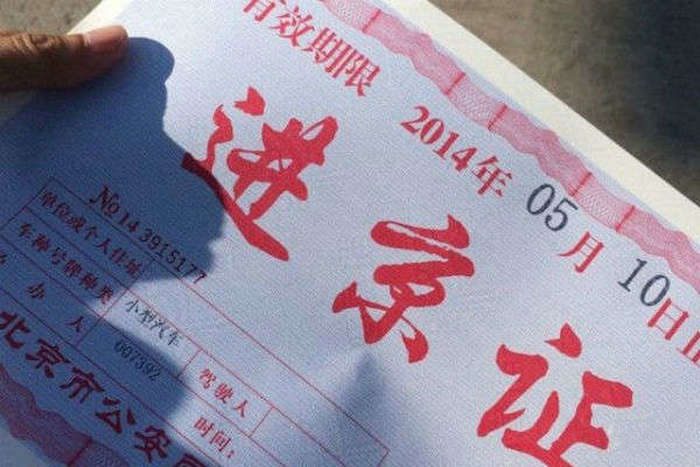 有效期限 2014年 05月 10日止
进京证
No 14 3915177
单位或个人住址
车种号牌种类 小型汽车 驾驶人
办人 007392 时间：
北京市公安